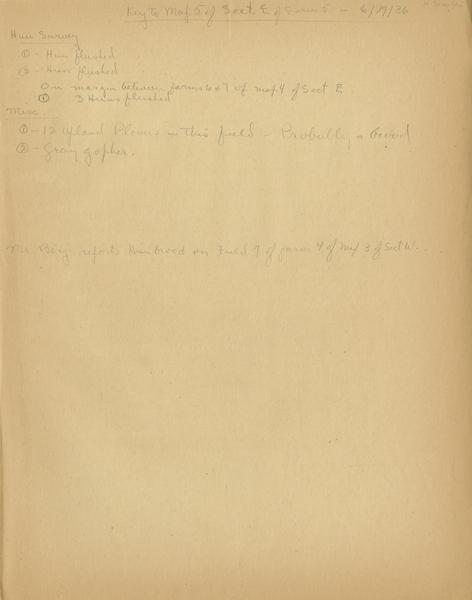 Key to Map 5 of Sect. E of Series 5 - 6/19/36
Hun Survey
① - Hun flushed
② - Huns flushed
On margin between farms 6 + 7 of map 4 of Sect E
① 3 Huns flushed
Misc.
① - 12 Upland Plovers in this field - Probably a brood
② - Gray gopher.
Mr. Berg reports Hun brood on Field 7 of farm 4 of Map 3 of Sect W.